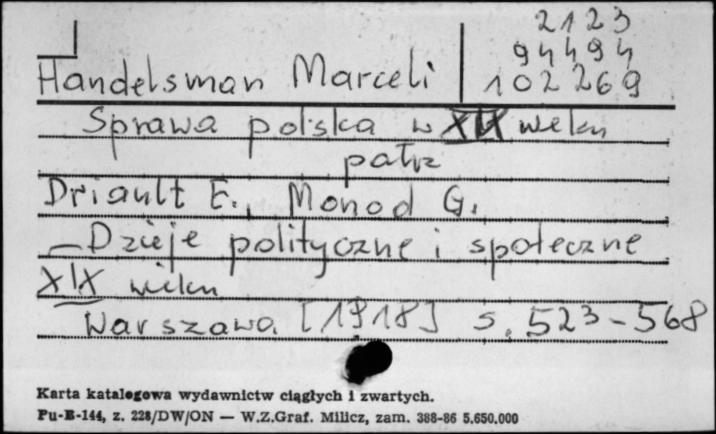 2123
94494
Handelsman Marceli 102269
Sprawa polska w XIX wieku
patrz
Driault E., Monod G.
Dzieje polityczne i społeczne
XIX wieku
Warszawa [1918] s. 523-568
Karta katalogowa wydawnictw ciągłych i zwartych.
Pu-B-144, z. 228/DW/ON — W.Z.Graf. Milicz, zam. 388-86 5.650.000